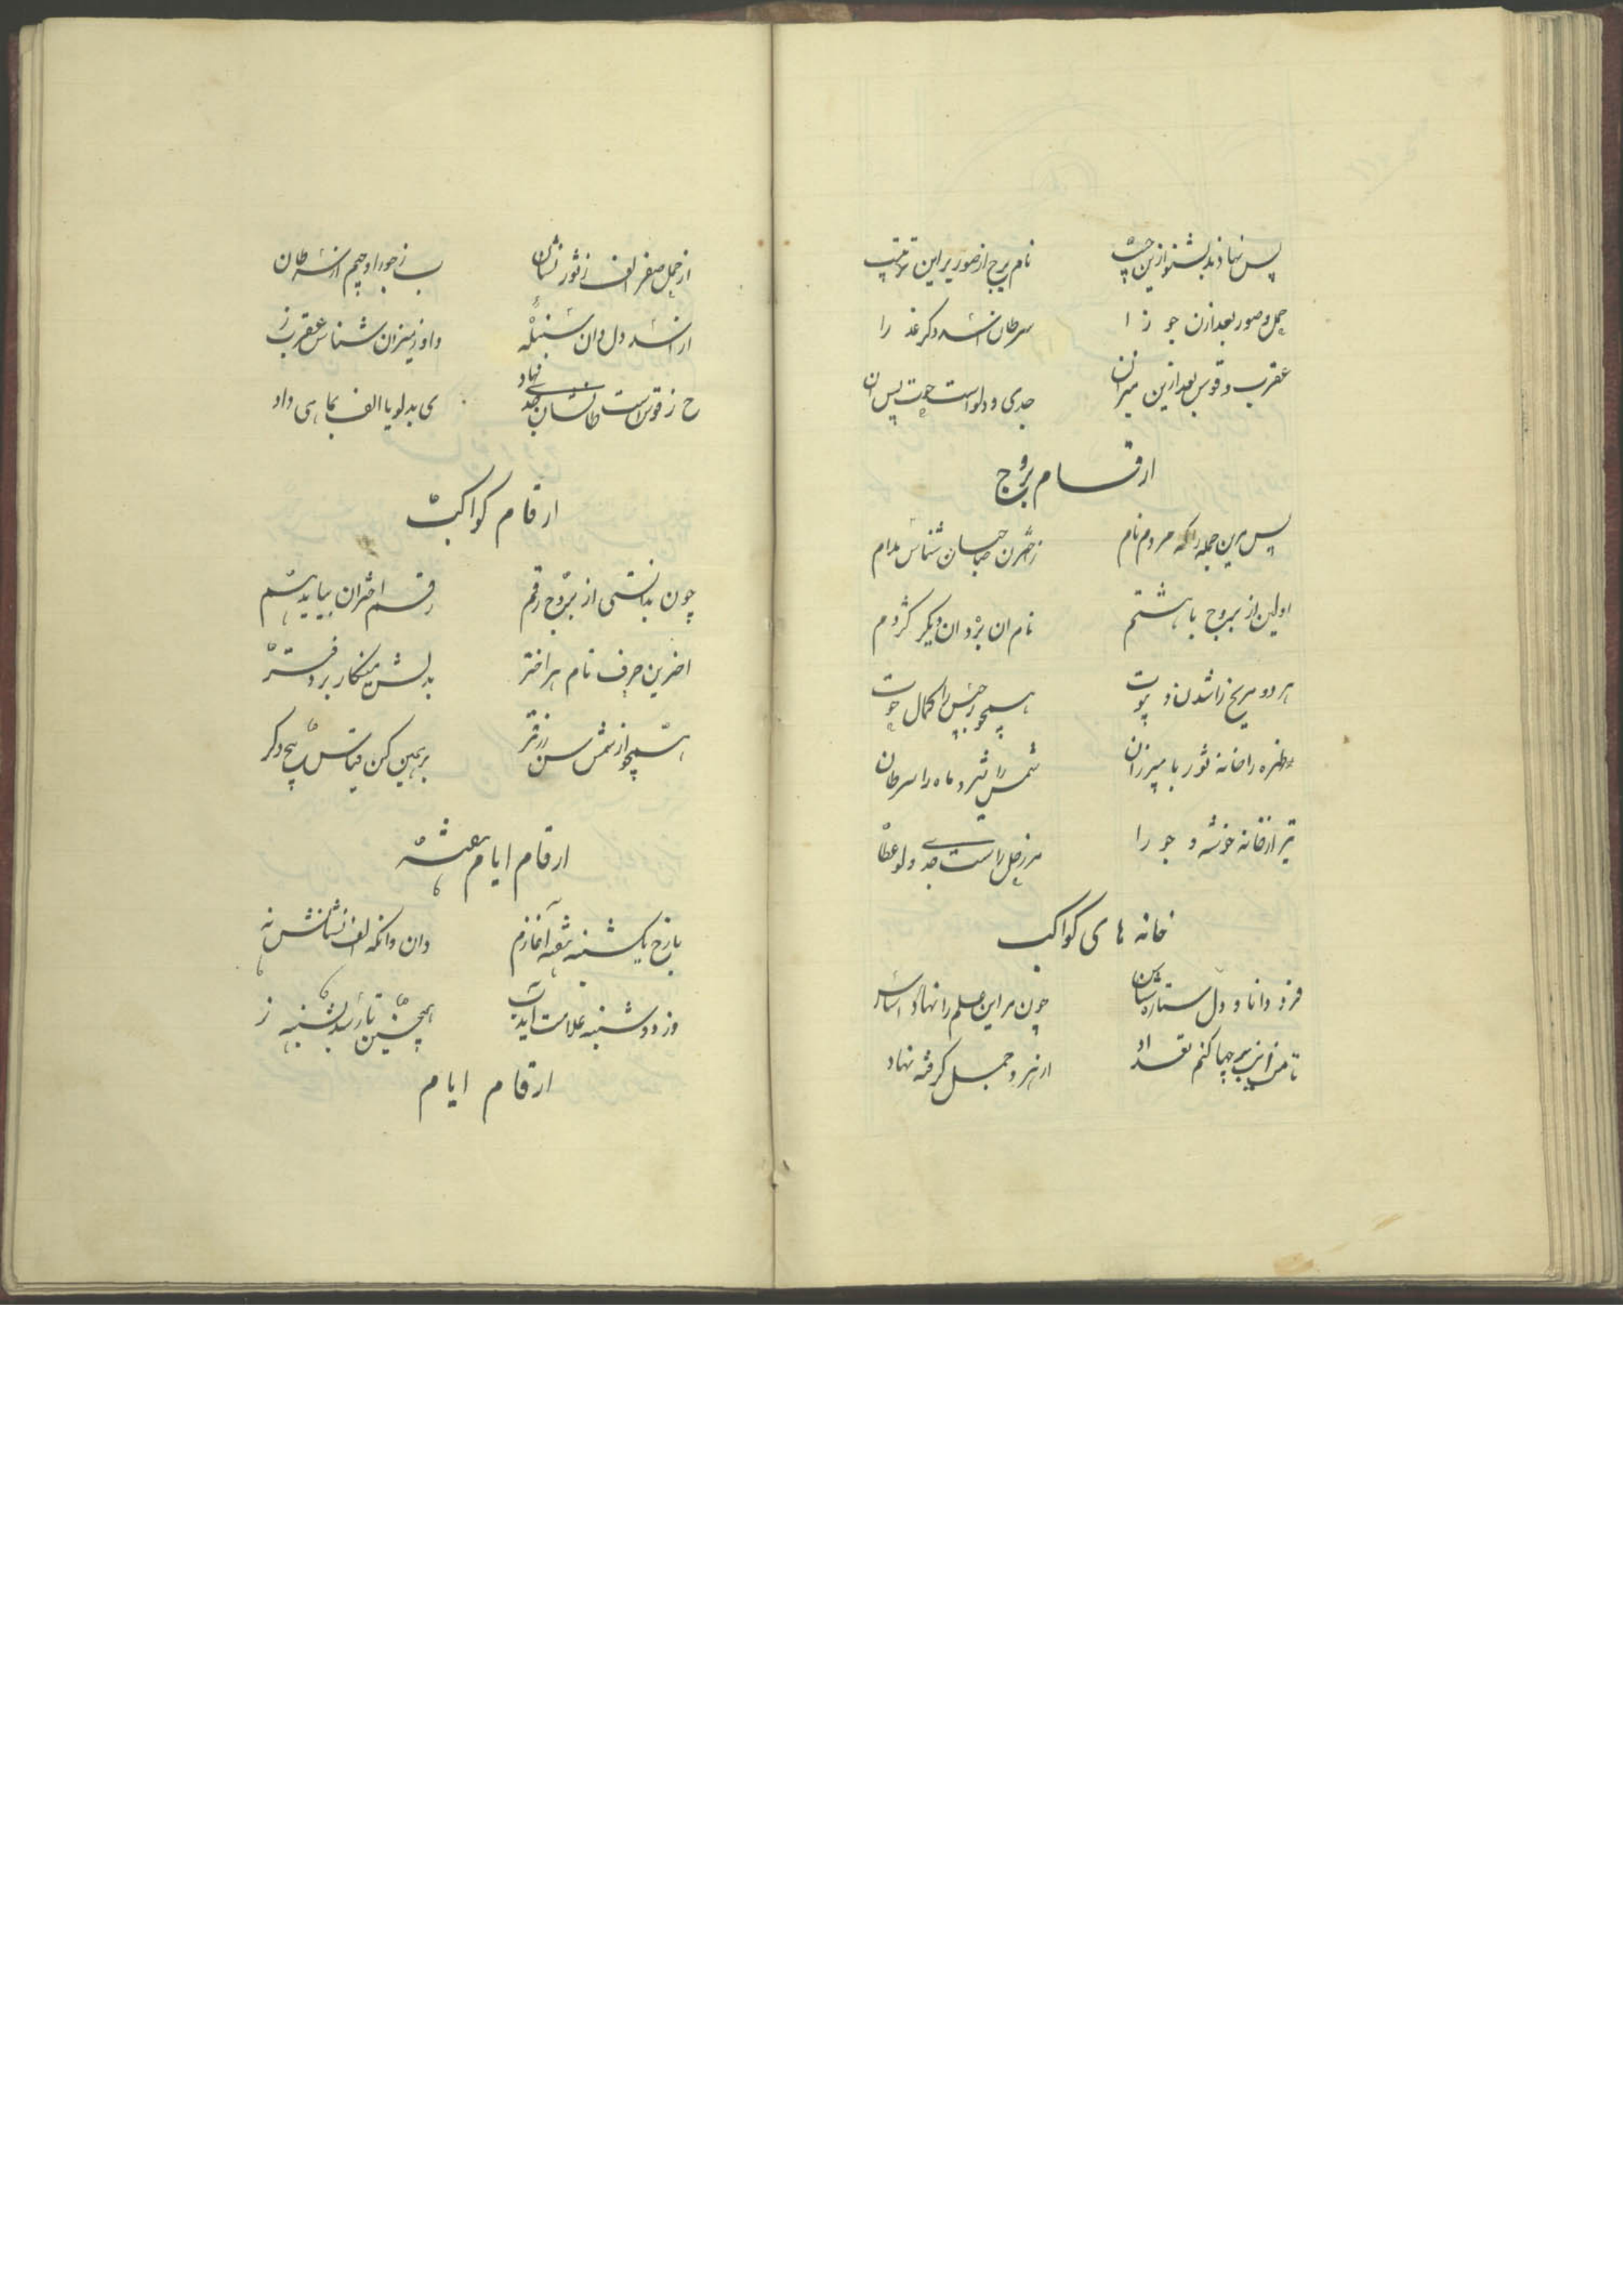 پس نهادند بشنو ازین چپ نام برج از صور برین ترتیب
حمل و صور بعد ازان جوزا سرطان اسد دکر عذرا
عقرب و قوس بعد ازین میزان جدی و دلو است حوت پس ان
ارقام بروج
پس مرین جمله را که مردم نام شناس مدام
اولین از بروج با هشتم نام ان بره و ان دیکر کژدم
هر دو مریخ را شدند بیوت همچو برجیس را کمال حوت
زهره را خانه ثور با میزان شمس را شیر و ماه را سرطان
تیر را خانه خوشه و جوزا مر زحل راست جدی و دلو عطا
خانه های کواکب
فرد دانا و دل ستاره شناس چون مر این علم را نهاد اساس
تا من این برجها کنم تعداد از بره و حمل کرفته نهاد
از حمل صفر الف ز ثور نشان ب ز جوزا و جیم از سرطان
از اسد دل و ان سنبله واو ز میزان شناس عقرب ز
ح ز قوس است طا نشان جدی نهاد ی بدلو یا الف بماهی داد
ارقام کواکب
چون بدانستی از بروج رقم رقم اختران بیاید هم
اخرین حرف نام هر اختر بدلش مینکار بر دفتر
همچو از شمس سین ر ز قمر برهمین کن قیاس پنج دکر
ارقام ایام هفته
بازخ یکشنبه هفته آغازم دان وانکه الف نشانش نه
وز دوشنبه علامت آید ب همچنین تا رسد بشنبه ز
ارقام ایام